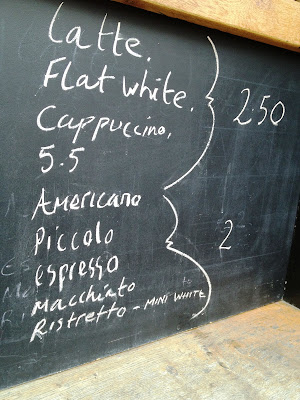 Latte.
Flat white.
Cappuccino,
5.5
2.50
Americano
Piccolo
espresso
Macchiato
Ristretto - MINI WHITE
2